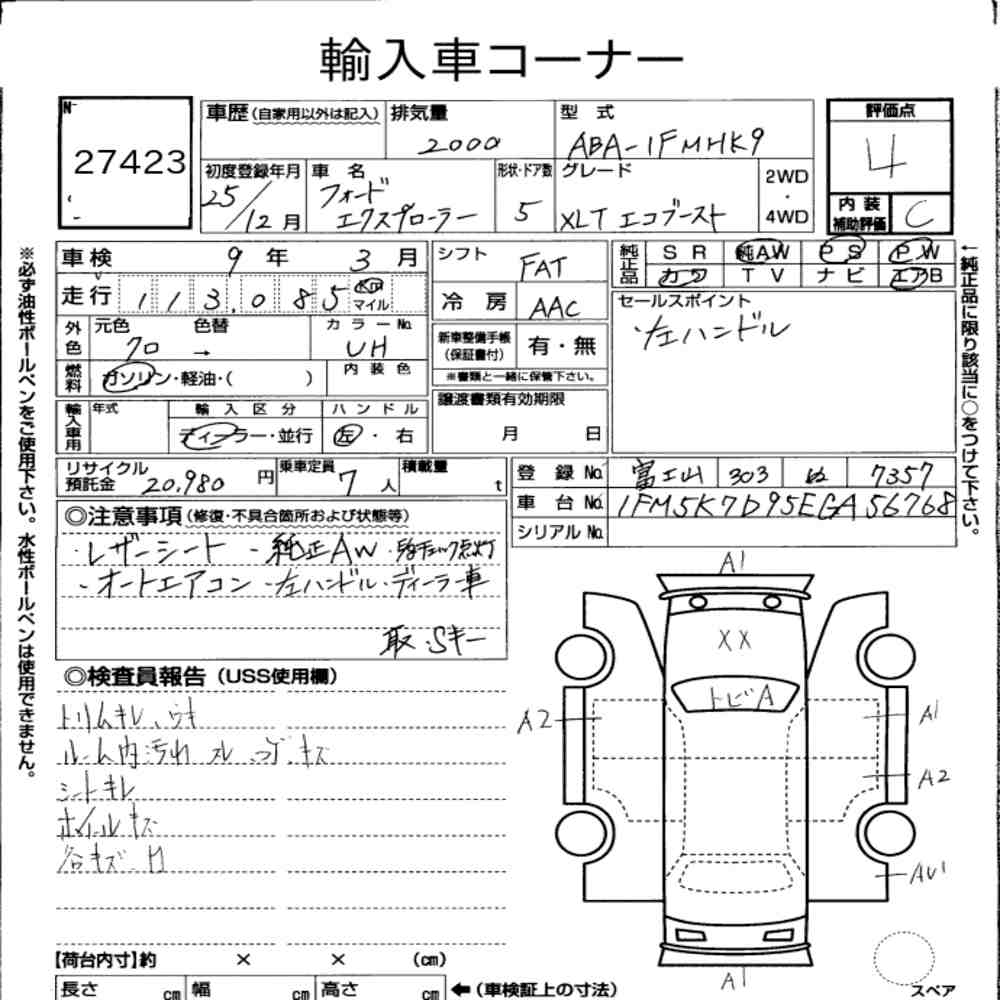 輸入車コーナー
N-
27423
車歴(自家用以外は記入)
排気量
2000
型式
ABA-1FMHK9
評価点
4
初度登録年月
25/12月
車名
フォード
エクスプローラー
形状・ドア数
5
グレード
XLT エコブースト
2WD
・
4WD
内装
補助評価
C
※必ず油性ボールペンをご使用下さい。水性ボールペンは使用できません。
車検 9年 3月
走行 113.085 Km
マイル
外色
元色 色替
70 →
カラーNo.
UH
燃料
ガソリン・軽油・( )
内装色
輸入車用
年式
輸入区分
ディーラー・並行
ハンドル
左・右
シフト FAT
冷房 AAC
新車整備手帳
(保証書付)
有・無
※書類と一緒に保管下さい。
譲渡書類有効期限
月 日
純正品
SR 純AW PS PW
カワ TV ナビ エアB
セールスポイント
・左ハンドル
←純正品に限り該当に○をつけて下さい。
リサイクル
預託金
20,980円
乗車定員
7人
積載量
t
登録No. 富士山 303 ぬ 7357
車台No. 1FM5K7D95EGA56768
シリアルNo.
◎注意事項(修復・不具合箇所および状態等)
・レザーシート ・純正AW ・点灯
・オートエアコン ・左ハンドル・ディーラー車
取・Sキー
◎検査員報告(USS使用欄)
トリムキレ、ウキ
ルーム内汚れ スレ コゲ、キズ
シートキレ
ホイールキズ
各キズ、凹
A1
XX
トビA
A2
A1
A2
AU1
A1
スペア
【荷台内寸】約 × × (cm)
長さ cm 幅 cm 高さ cm ←(車検証上の寸法)